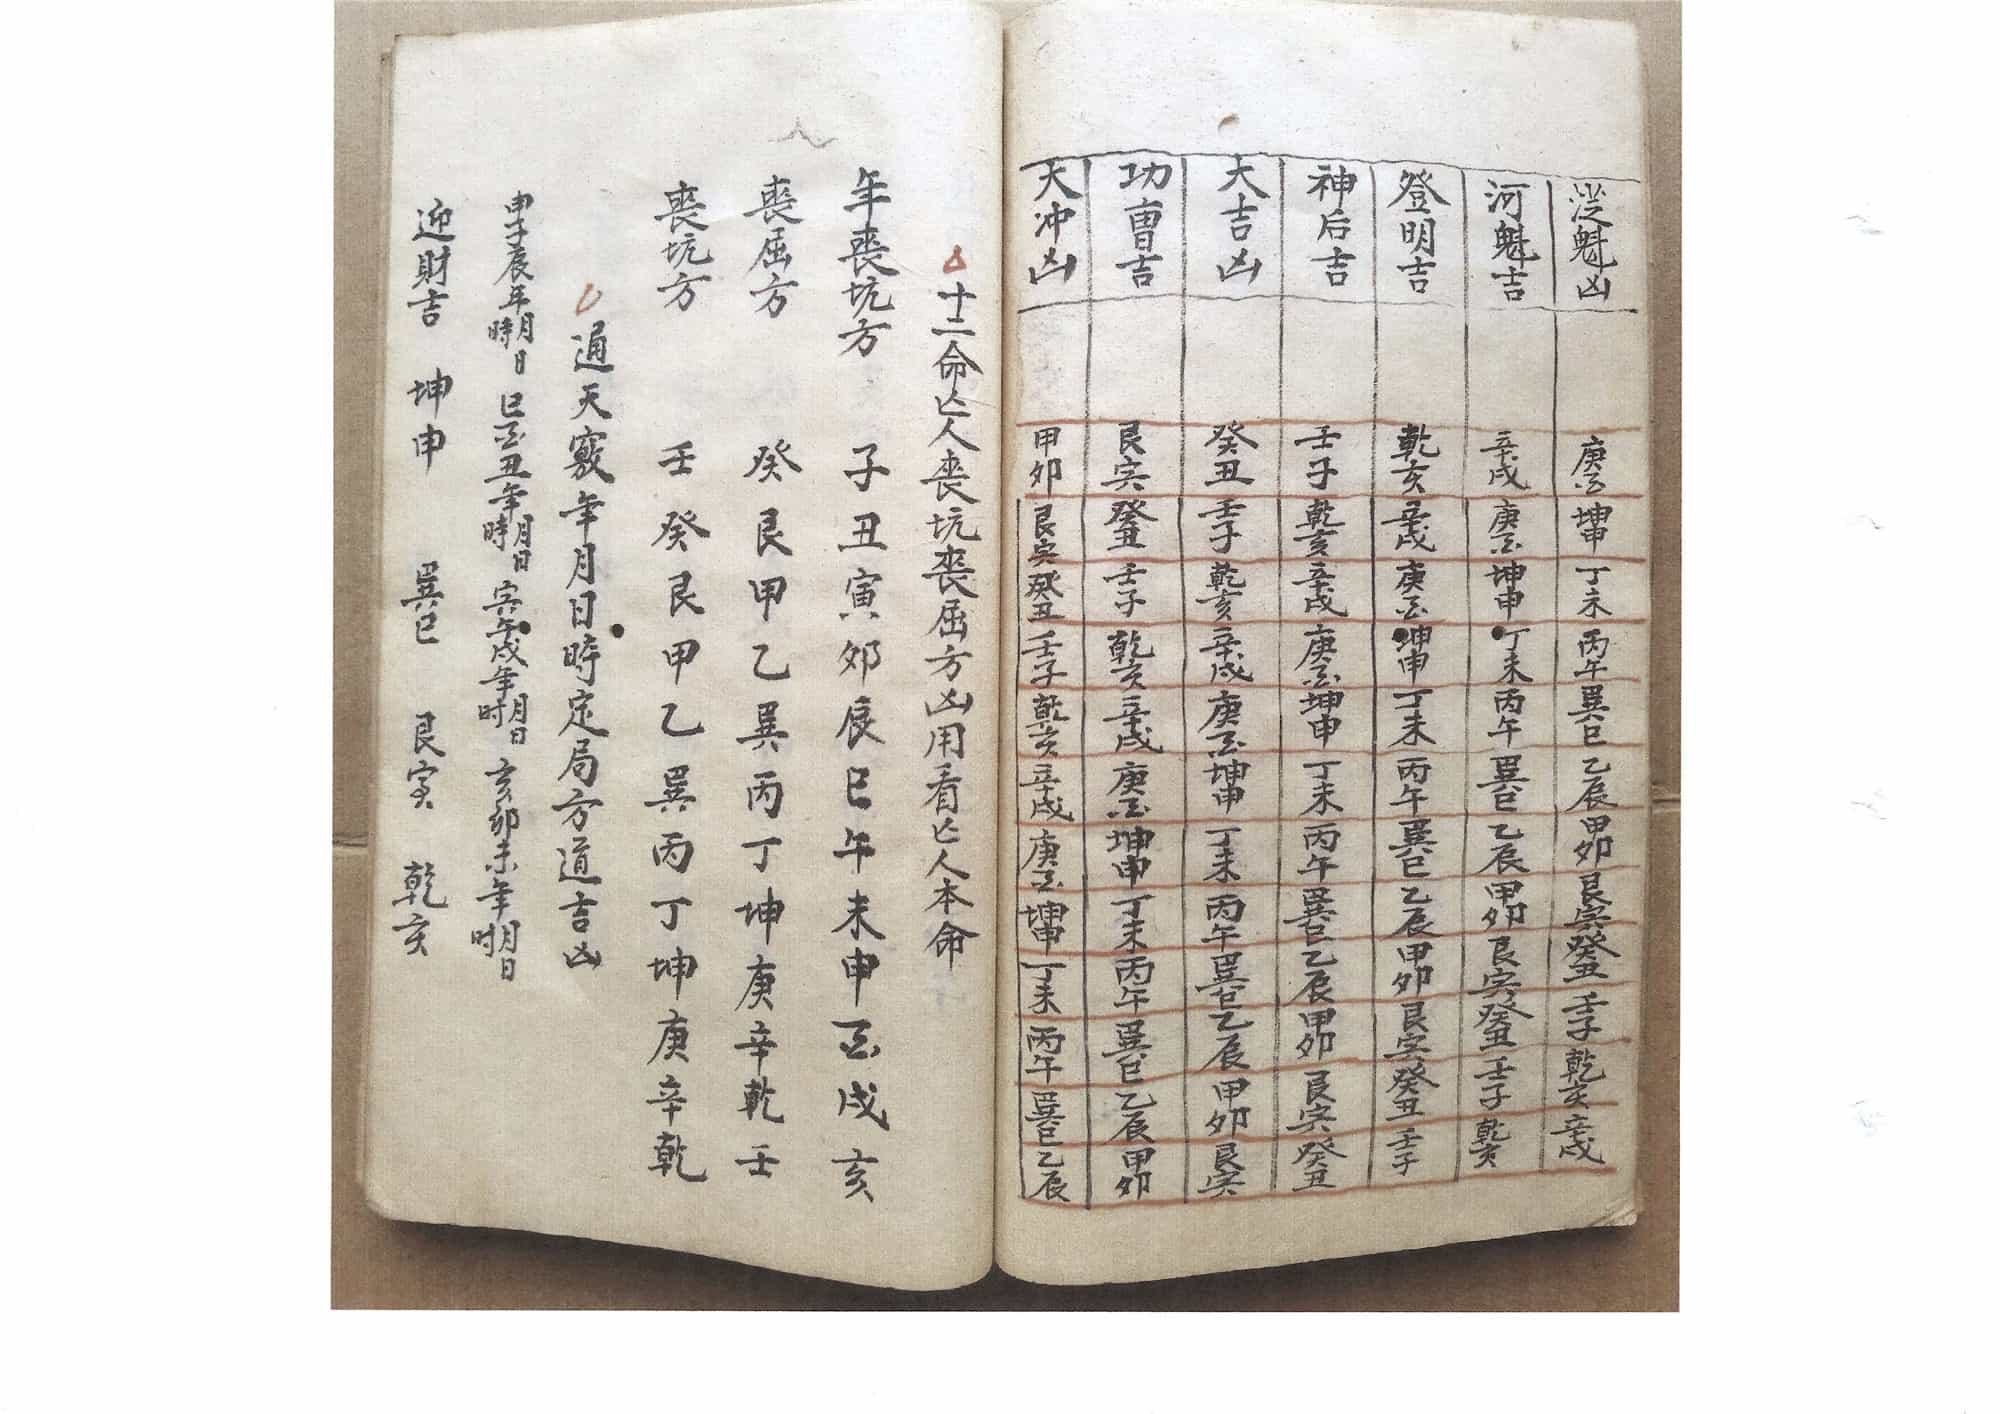 魁凶 庚酉 坤申 丁未 丙午 巽巳 乙辰 甲卯 艮寅 癸丑 壬子 乾亥 辛戌
河魁吉 辛戌 庚酉 坤申 丁未 丙午 巽巳 乙辰 甲卯 艮寅 癸丑 壬子 乾亥
登明吉 乾亥 辛戌 庚酉 坤申 丁未 丙午 巽巳 乙辰 甲卯 艮寅 癸丑 壬子
神后吉 壬子 乾亥 辛戌 庚酉 坤申 丁未 丙午 巽巳 乙辰 甲卯 艮寅 癸丑
大吉凶 癸丑 壬子 乾亥 辛戌 庚酉 坤申 丁未 丙午 巽巳 乙辰 甲卯 艮寅
功曹吉 艮寅 癸丑 壬子 乾亥 辛戌 庚酉 坤申 丁未 丙午 巽巳 乙辰 甲卯
天冲凶 甲卯 艮寅 癸丑 壬子 乾亥 辛戌 庚酉 坤申 丁未 丙午 巽巳 乙辰
十二命亡人喪坑喪屈方凶用看亡人本命
年喪坑方 子丑寅卯辰巳午未申酉戌亥
喪屈方 癸艮甲乙巽丙丁坤庚辛乾壬
喪坑方 壬癸艮甲乙巽丙丁坤庚辛乾
通天竅年月日時定局方道吉凶
申子辰年月日時 巳酉丑年月日時 寅午戌年月日時 亥卯未年月日時
迎財吉 坤申 巽巳 艮寅 乾亥